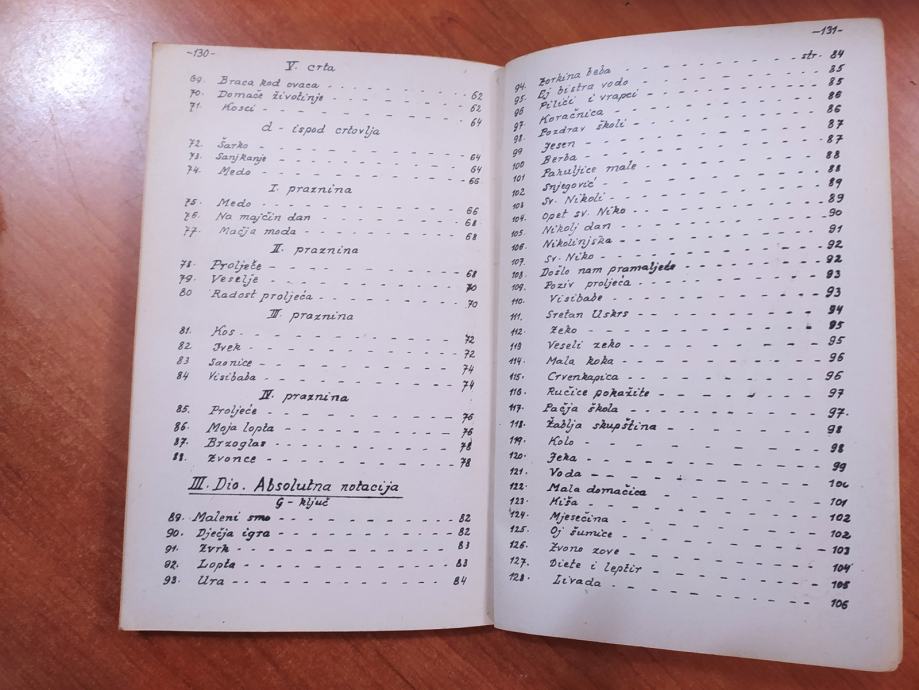 -130-
V. crta
69. Braca kod ovaca - - - - - - - - 62
70. Domaće životinje - - - - - - - - 62
71. Kosci - - - - - - - - 64
d - ispod crtovlja
72. Šarko - - - - - - - - 64
73. Sanjkanje - - - - - - - - 64
74. Medo - - - - - - - - 66
I. praznina
75. Medo - - - - - - - - 66
76. Na majčin dan - - - - - - - - 68
77. Mačja moda - - - - - - - - 68
II. praznina
78. Proljeće - - - - - - - - 68
79. Veselje - - - - - - - - 70
80 Radost proljeća - - - - - - - - 70
III. praznina
81. Kos - - - - - - - - 72
82. Ivek - - - - - - - - 72
83 Saonice - - - - - - - - 74
84 Visibaba - - - - - - - - 74
IV. praznina
85. Proljeće - - - - - - - - 76
86. Moja lopta - - - - - - - - 76
87. Brzoglas - - - - - - - - 78
88. Zvonce - - - - - - - - 78
III. Dio. Absolutna notacija
G - ključ
89. Maleni smo - - - - - - - - 82
90. Dječja igra - - - - - - - - 82
91. Zvrk - - - - - - - - 83
92. Lopta - - - - - - - - 83
93. Ura - - - - - - - - 84
-131-
94. Zorkina beba - - - - - - - - str. 84
95. Ej bistra vodo - - - - - - - - 85
96 Pilići i vrapci - - - - - - - - 85
97. Koračnica - - - - - - - - 86
98. Pozdrav školi - - - - - - - - 86
99 Jesen - - - - - - - - 87
100 Berba - - - - - - - - 87
101 Pahuljice male - - - - - - - - 88
102 Snjegović - - - - - - - - 88
103 Sv. Nikoli - - - - - - - - 89
104. Opet sv. Niko - - - - - - - - 89
105. Nikolj dan - - - - - - - - 90
106. Nikolinjska - - - - - - - - 91
107. Sv. Niko - - - - - - - - 92
108. Došlo nam pramaljeće - - - - - - - - 92
109. Poziv proljeća - - - - - - - - 93
110. Visibabe - - - - - - - - 93
111. Sretan Uskrs - - - - - - - - 94
112. Zeko - - - - - - - - 95
113 Veseli zeko - - - - - - - - 95
114. Mala koka - - - - - - - - 96
115. Crvenkapica - - - - - - - - 96
116. Ručice pokažite - - - - - - - - 97
117. Pačja škola - - - - - - - - 97.
118. Žablja skupština - - - - - - - - 98
119. Kolo - - - - - - - - 98
120. Jeka - - - - - - - - 99
121. Voda - - - - - - - - 100
122. Mala domaćica - - - - - - - - 101
123. Kiša - - - - - - - - 102
124. Mjesečina - - - - - - - - 102
125. Oj šumice - - - - - - - - 103
126. Zvono zove - - - - - - - - 104
127. Diete i leptir - - - - - - - - 105
128. Livada - - - - - - - - 106